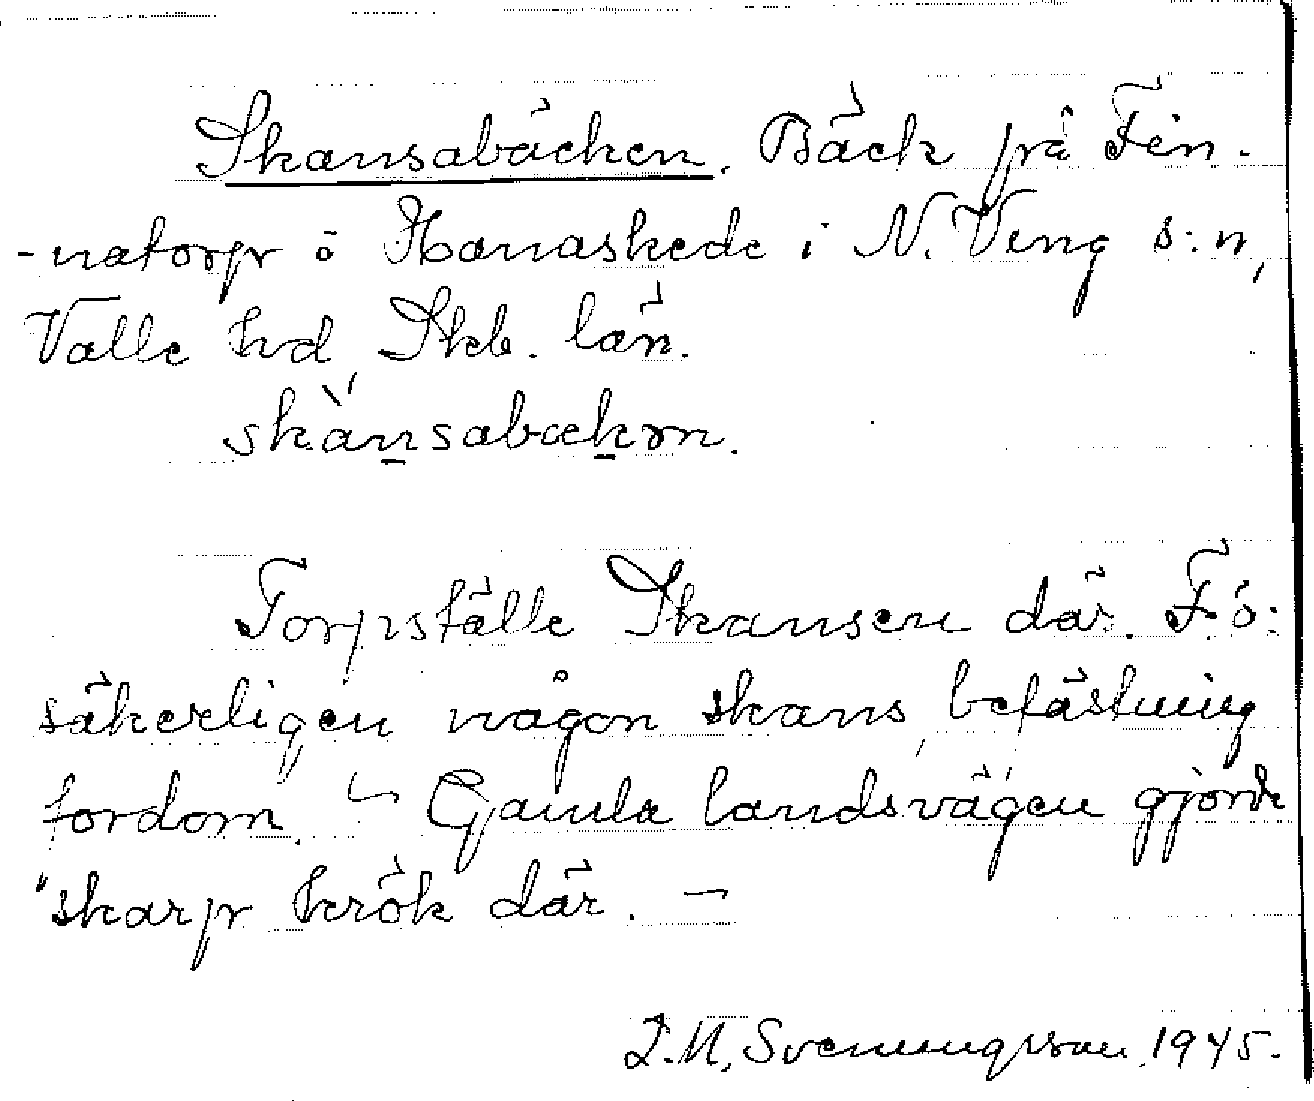 Skansabäcken. Bäck på Fin-
-natorp i Hanaskede i N. Ving s:n,
Valle hd Skb. län.
skànsabækøn.
Torpställe Skansen där. F.ö:
säkerligen någon skans, befästning
fordom. Gamla landsvägen gjorde
"skarp krök där. —
L.M. Svenungsson 1945.